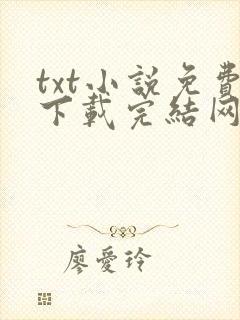 txt小說免費
下載完結网
廖愛玲